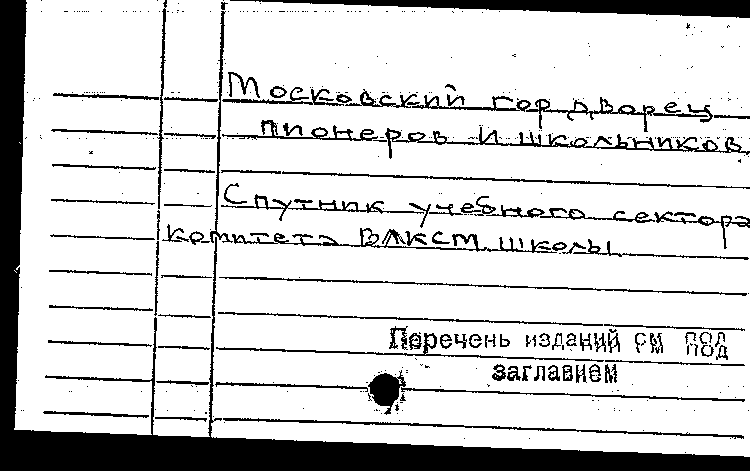 Московский гор дворец
пионеров и школьников.
Спутник учебного сектора
комитета ВЛКСМ школы
Перечень изданий см под
заглавием